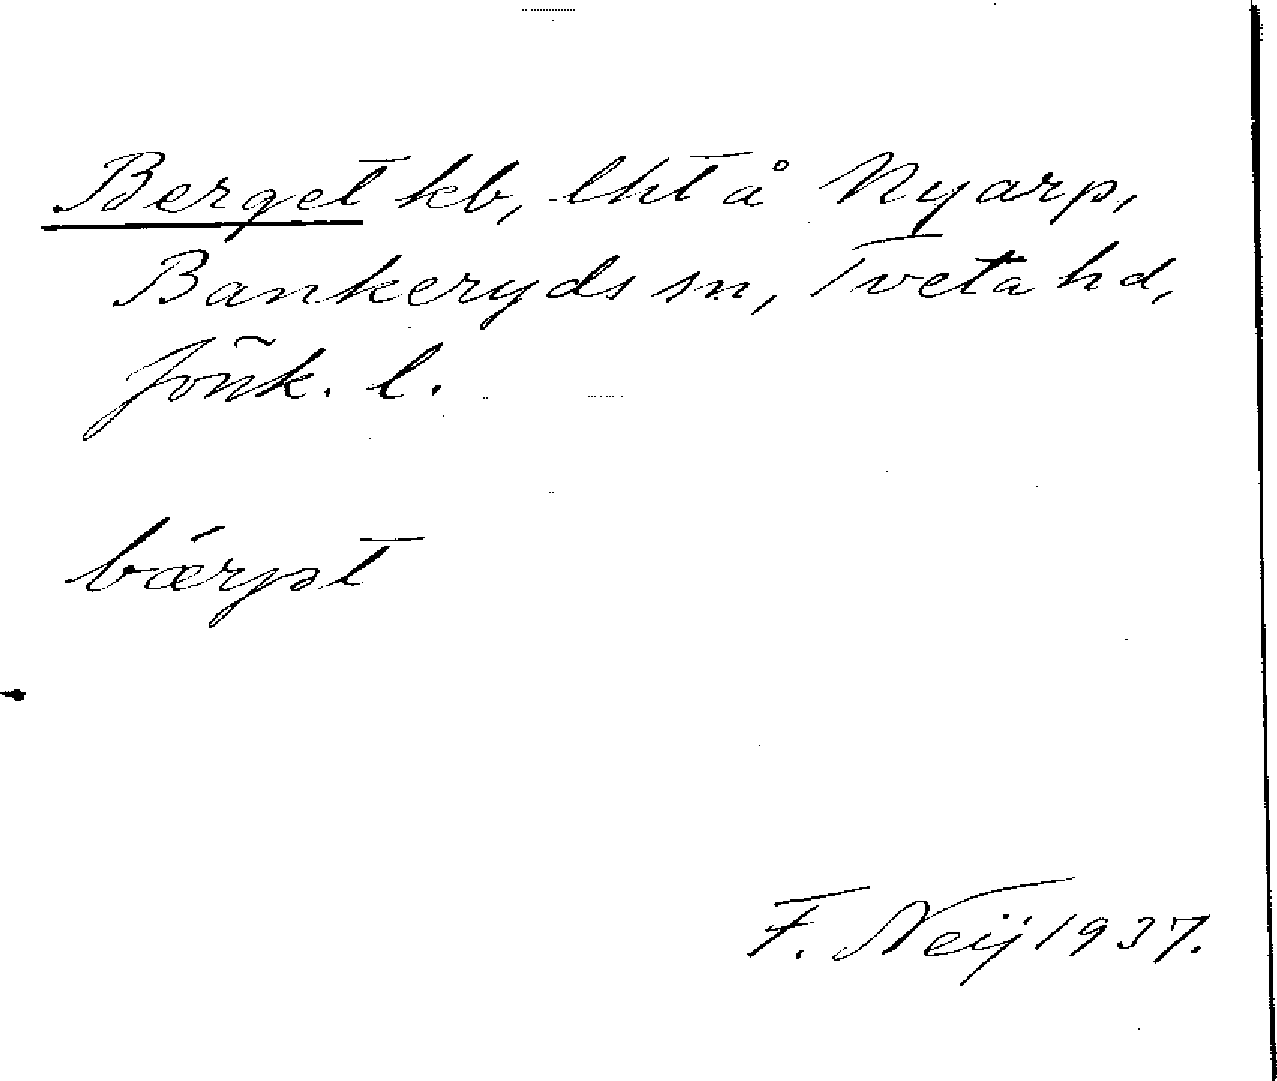 Berget kb, lht å Nyarp,
Bankeryds sn, Tveta hd,
Jönk. l.
bǽrjət
F. Neij 1937.